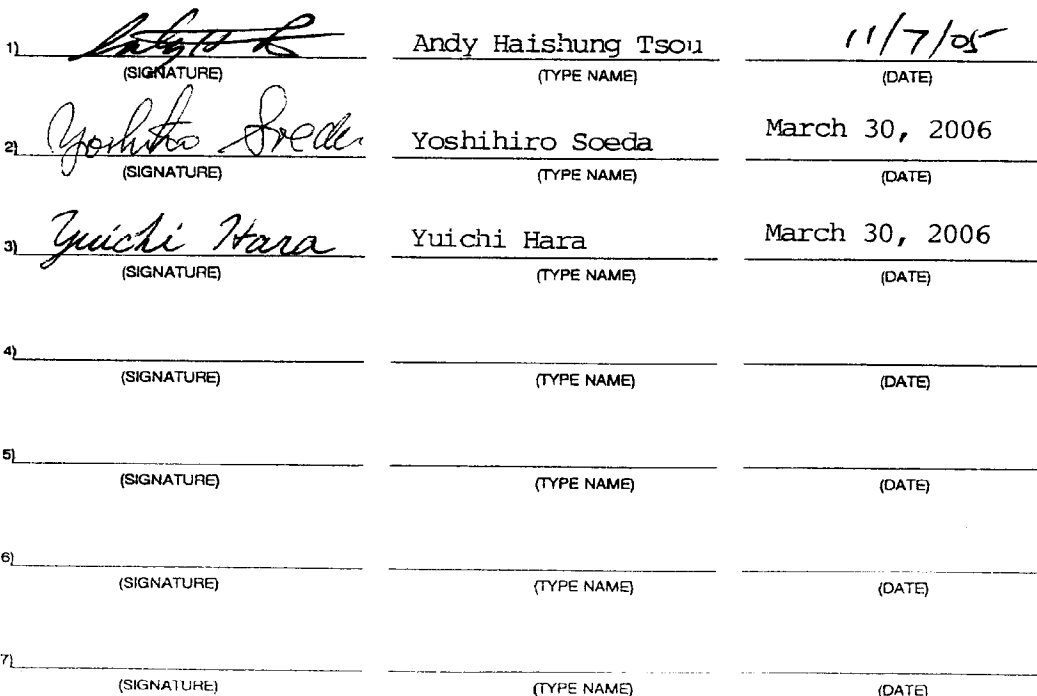 1) Andy Haishung Tsou 11/7/05
(SIGNATURE) (TYPE NAME) (DATE)
2) Yoshihiro Soeda Yoshihiro Soeda March 30, 2006
(SIGNATURE) (TYPE NAME) (DATE)
3) Yuichi Hara Yuichi Hara March 30, 2006
(SIGNATURE) (TYPE NAME) (DATE)
4)
(SIGNATURE) (TYPE NAME) (DATE)
5)
(SIGNATURE) (TYPE NAME) (DATE)
6)
(SIGNATURE) (TYPE NAME) (DATE)
7)
(SIGNATURE) (TYPE NAME) (DATE)